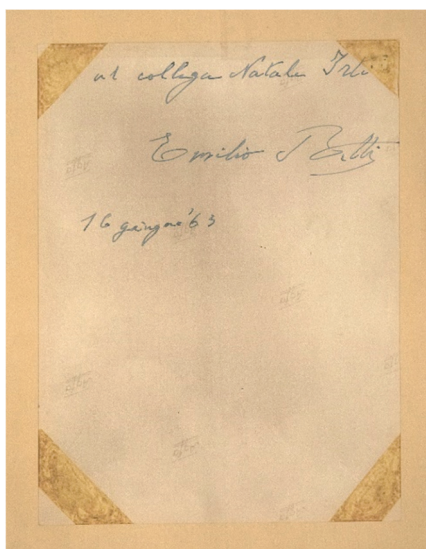 al collega Natale Irti
Emilio Betti
16 giugno '63